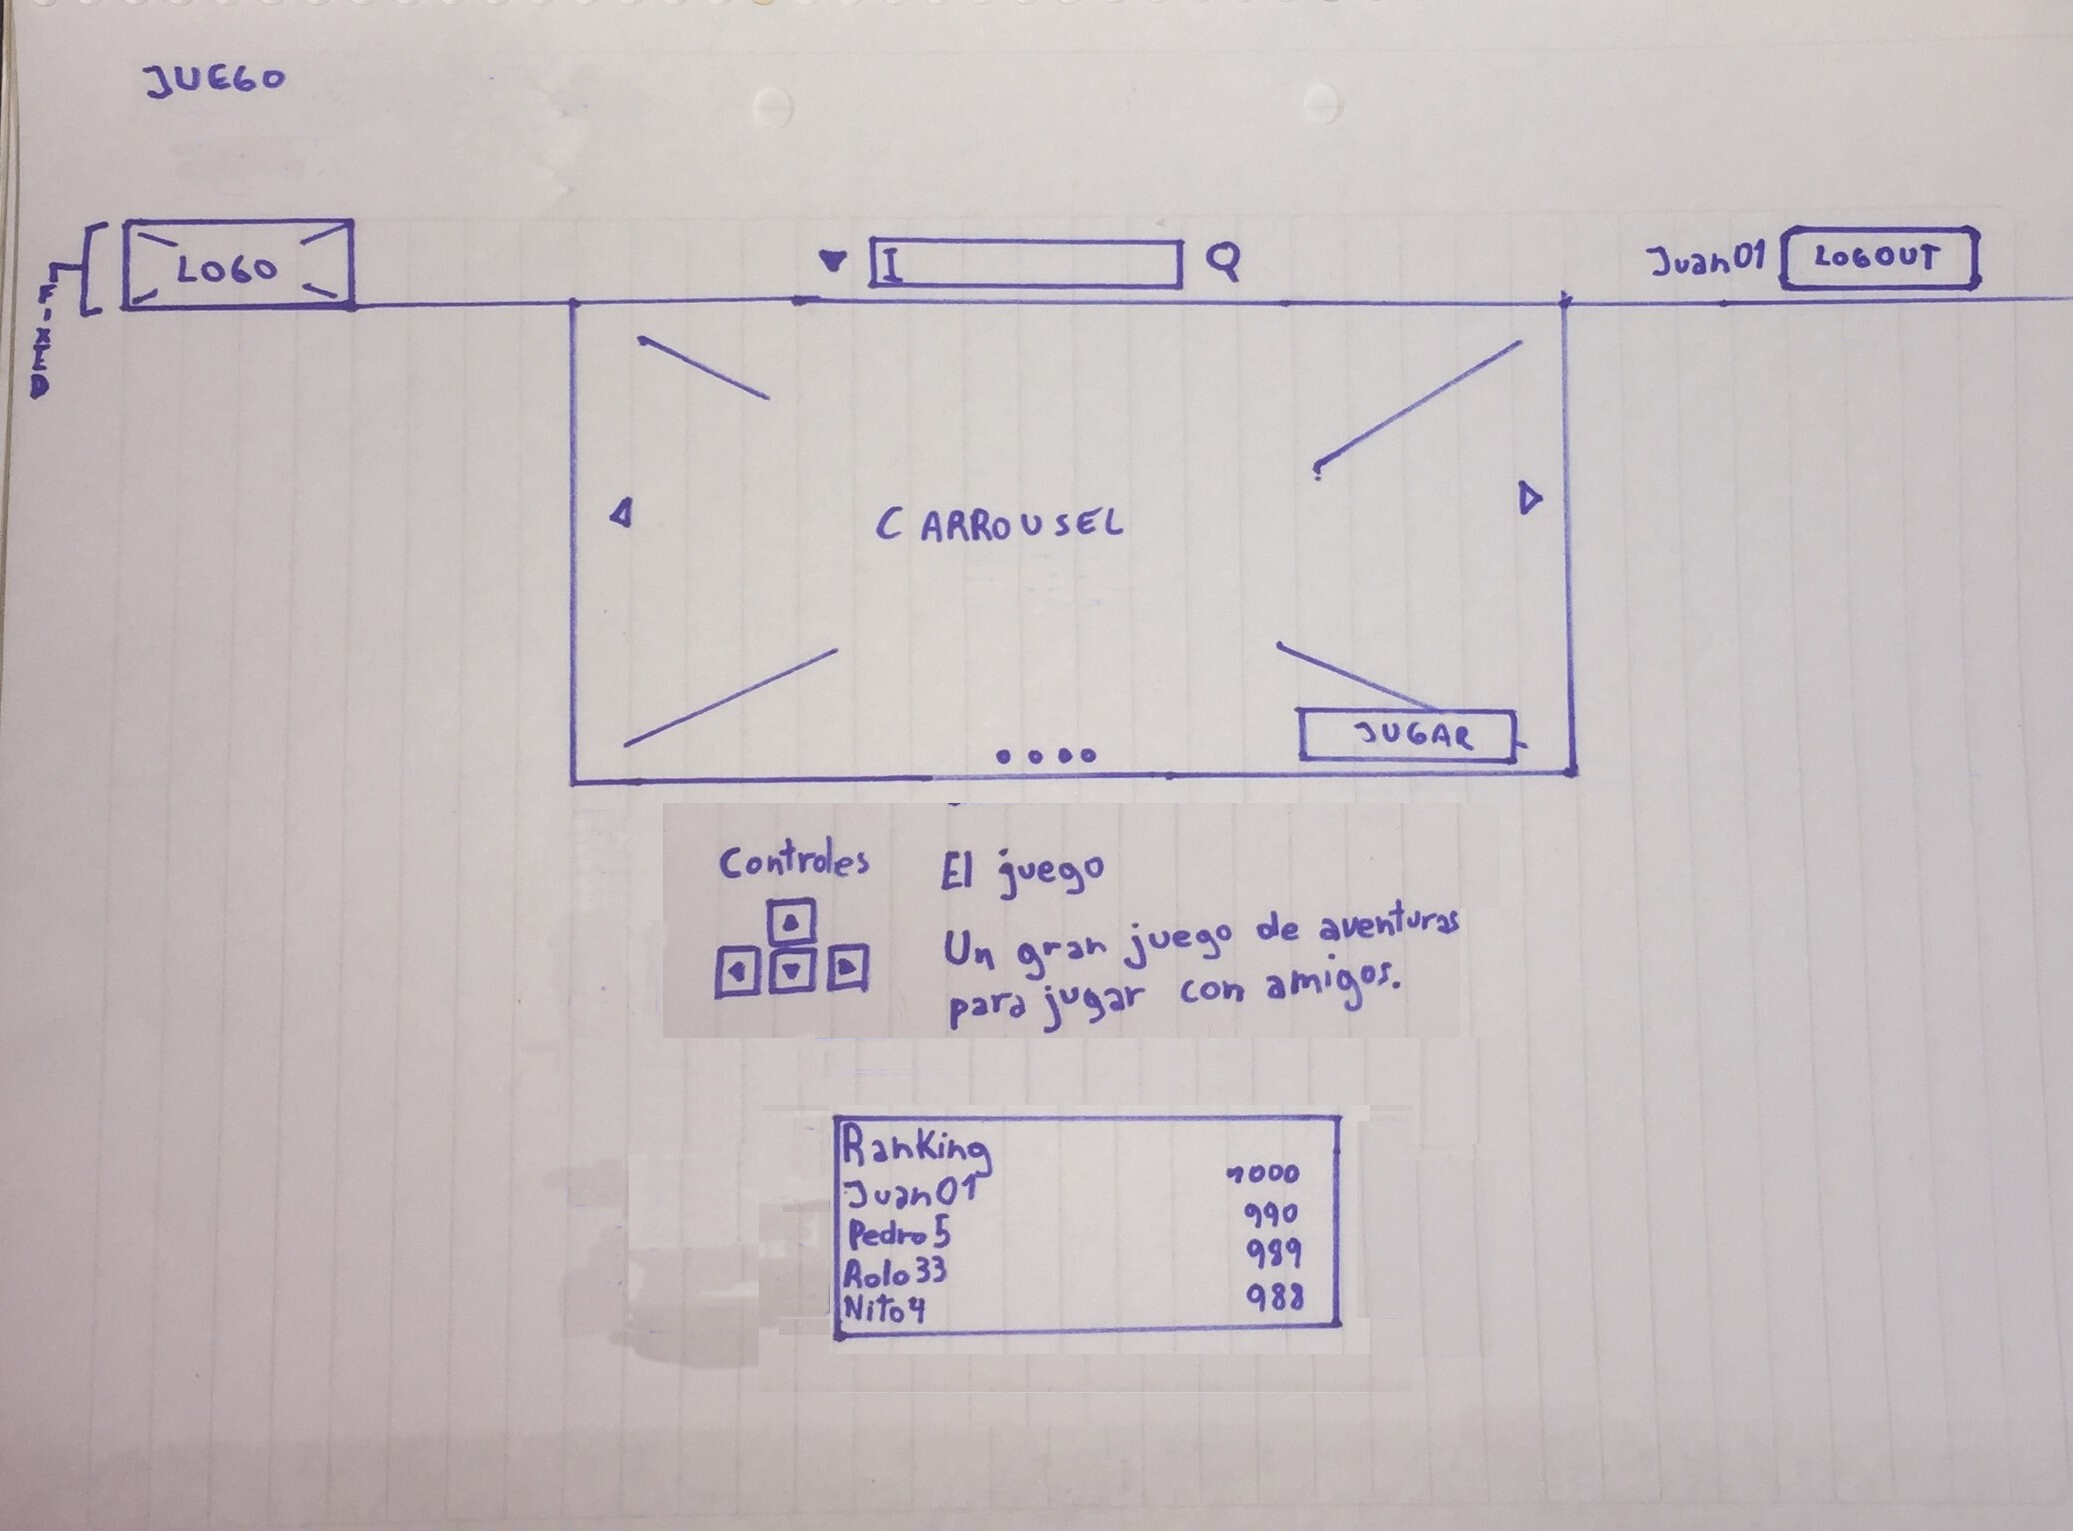 JUEGO
LOGO
I
Juan01
LOGOUT
CARROUSEL
JUGAR
Controles
El juego
Un gran juego de aventuras
para jugar con amigos.
Ranking
Juan01 1000
Pedro5 990
Rolo33 989
Nito4 988